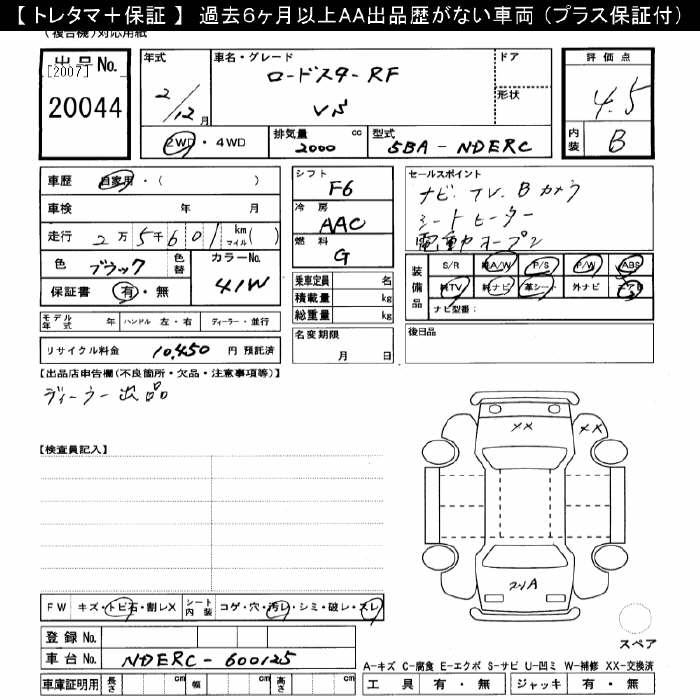 【 トレタマ＋保証 】 過去6ヶ月以上AA出品歴がない車両 (プラス保証付)
(複合機)対応用紙
出品 No.
[2007]
20044
年式
2/12月
車名・グレード
ロードスターRF
VS
ドア
形状
評価点
4.5
内装
B
2WD ・ 4WD
排気量 cc
2000
型式
5BA - NDERC
車歴 自家用 ・ ( )
車検 年 月
走行 2万5千601 km マイル( )
色 ブラック 色替
カラーNo.
41W
保証書 有 ・ 無
シフト
F6
冷房
AAC
燃料
G
乗車定員 名
積載量 kg
総重量 kg
名変期限
月 日
セールスポイント
ナビ. TV. Bカメラ
シートヒーター
電動オープン
装備品
S/R 純A/W P/S P/W ABS
純TV 純ナビ 革シート 外ナビ エアB
ナビ型番：
後日品
モデル年式 年 ハンドル 左・右 ディーラー・並行
リサイクル料金 10,450 円 預託済
【出品店申告欄(不良箇所・欠品・注意事項等)】
ディーラー出品
【検査員記入】
XX
XX
2-1A
FW キズ・トビ石・割レX シート内装 コゲ・穴・汚レ・シミ・破レ・スレ
登録 No.
車台 No. NDERC - 600125
車庫証明用 長さ cm 幅 cm 高さ cm
スペア
A-キズ C-腐食 E-エクボ S-サビ U-凹ミ W-補修 XX-交換済
工具 有 ・ 無 ジャッキ 有 ・ 無